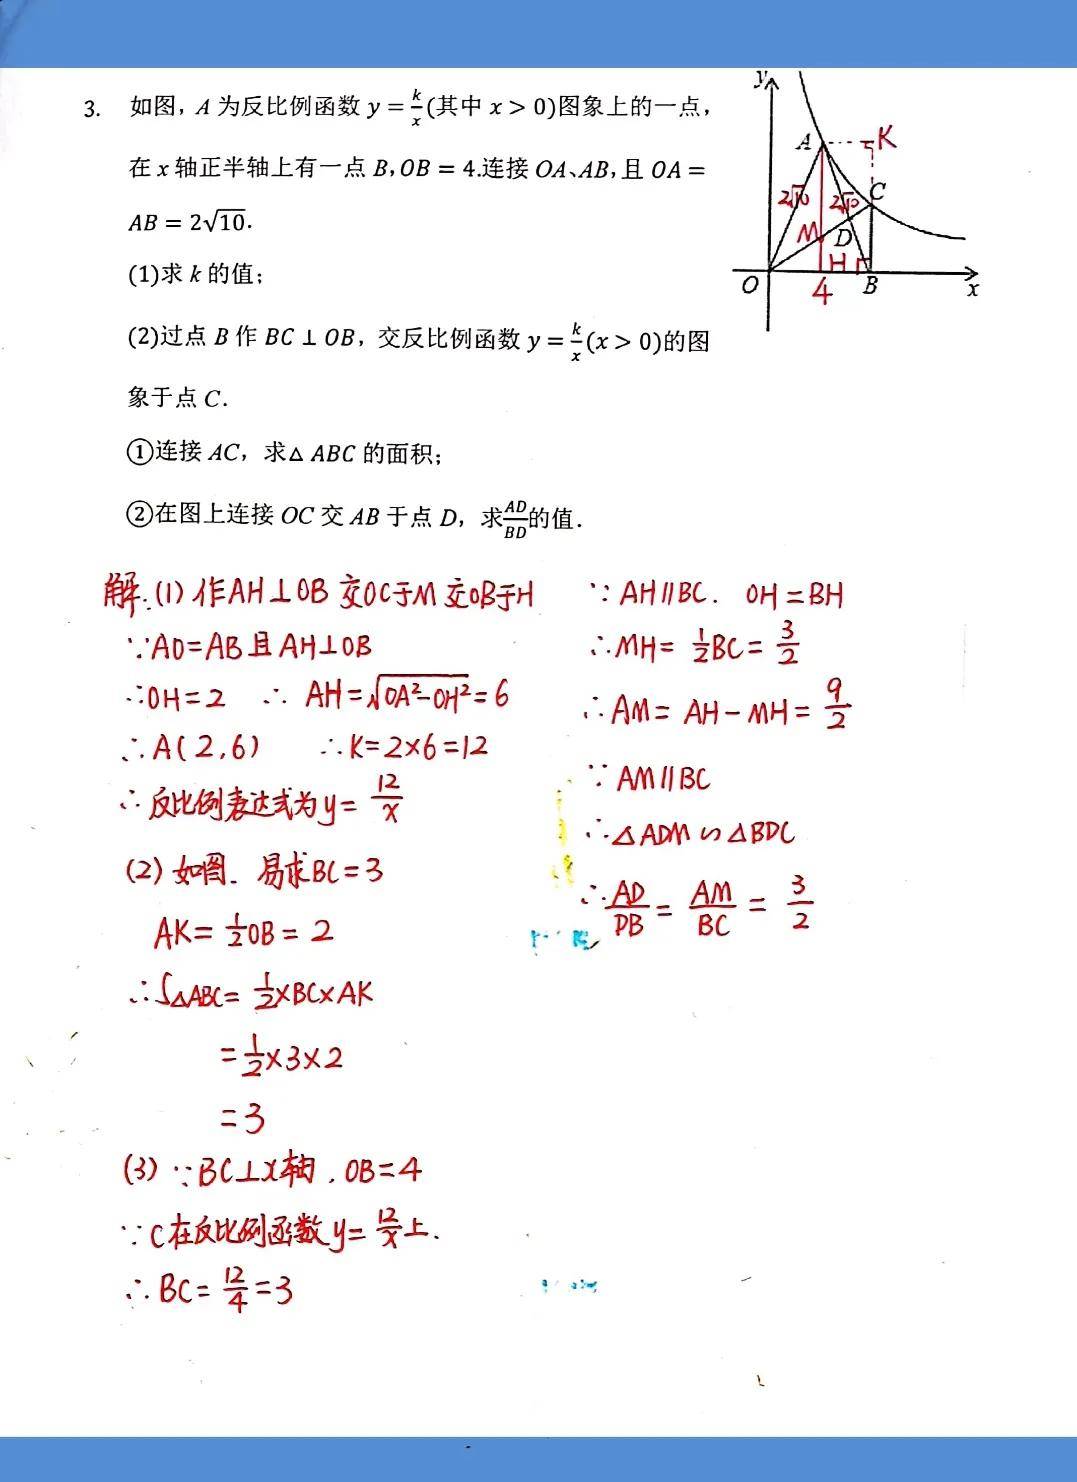 3. 如图，A 为反比例函数 y = k/x (其中 x > 0)图象上的一点，
在 x 轴正半轴上有一点 B，OB = 4.连接 OA、AB，且 OA =
AB = 2√10.
(1)求 k 的值；
(2)过点 B 作 BC ⊥ OB，交反比例函数 y = k/x (x > 0)的图
象于点 C.
①连接 AC，求△ ABC 的面积；
②在图上连接 OC 交 AB 于点 D，求AD/BD的值.
y
A K
2√10 2√10 C
M D
H
O 4 B x
解.(1) 作AH⊥OB 交OC于M 交OB于H
∵AO=AB 且 AH⊥OB
∴OH=2 ∴ AH=√OA²-OH²=6
∴A(2,6) ∴K=2×6=12
∴反比例表达式为y= 12/x
(2) 如图. 易求BC=3
AK= 1/2OB= 2
∴S△ABC= 1/2×BC×AK
=1/2×3×2
=3
(3) ∵BC⊥X轴，OB=4
∵C在反比例函数y= 12/x上.
∴BC= 12/4=3
∵AH∥BC. OH=BH
∴MH= 1/2BC= 3/2
∴AM= AH-MH= 9/2
∵AM∥BC
∴△ADM∽△BDC
∴AD/DB = AM/BC = 3/2